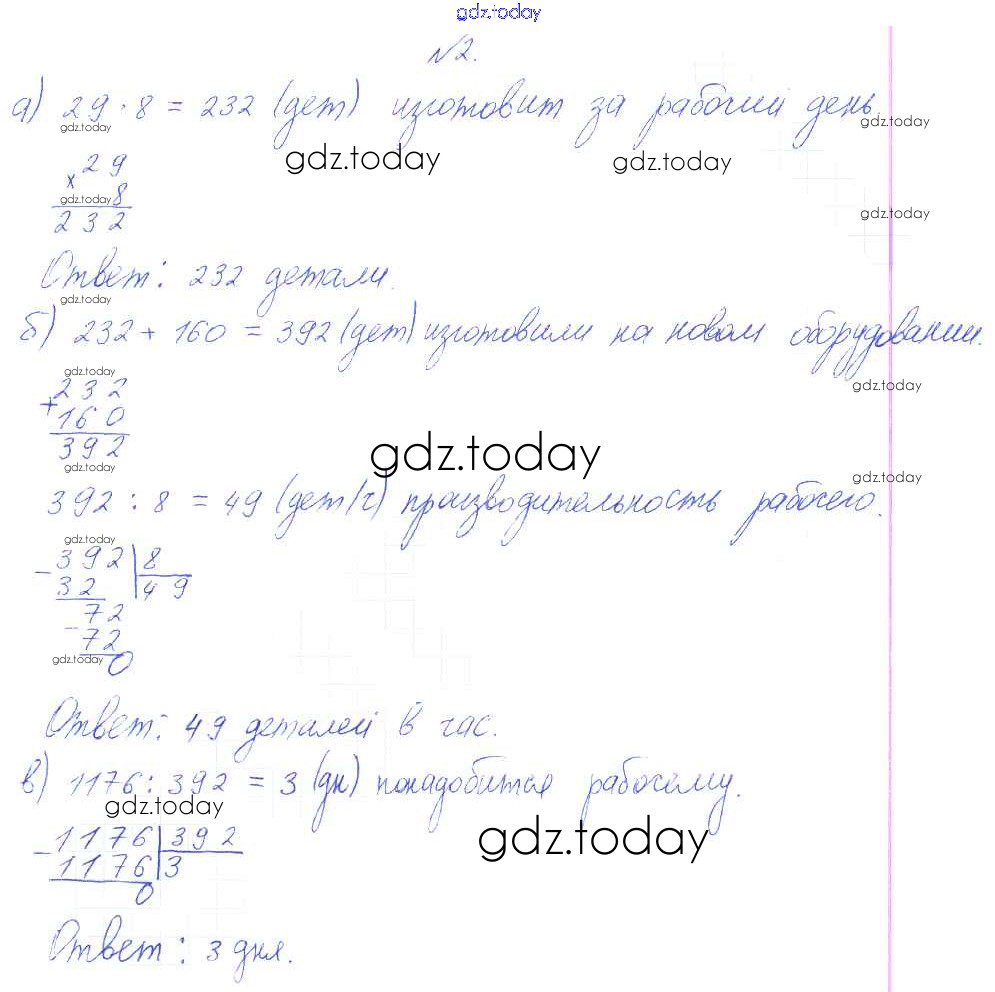 gdz.today
№2.
а) 29 · 8 = 232 (дет) изготовит за рабочий день.
gdz.today gdz.today
gdz.today gdz.today
× 29
gdz.today 8
gdz.today
232
Ответ: 232 детали.
gdz.today
б) 232 + 160 = 392 (дет) изготовили на новом оборудовании.
gdz.today
gdz.today
+ 232
160
392
gdz.today
gdz.today
gdz.today
392 : 8 = 49 (дет/ч) производительность рабочего.
gdz.today
- 392 | 8
32 49
- 72
72
gdz.today 0
Ответ: 49 деталей в час.
в) 1176 : 392 = 3 (дн) понадобится рабочему.
gdz.today
gdz.today
- 1176 | 392
1176 3
0
Ответ: 3 дня.